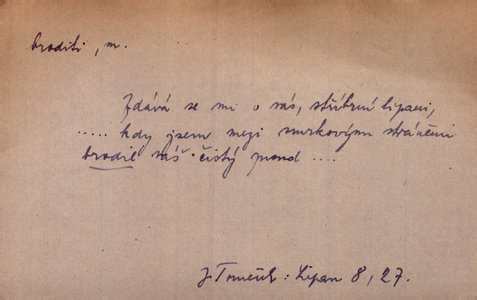 broditi, m.
Zdává se mi o vás, stříbrní lipani,
..... kdy jsem mezi smrkovými stráněmi
brodil váš čistý proud ....
J Tomeček: Lipan 8, 27.